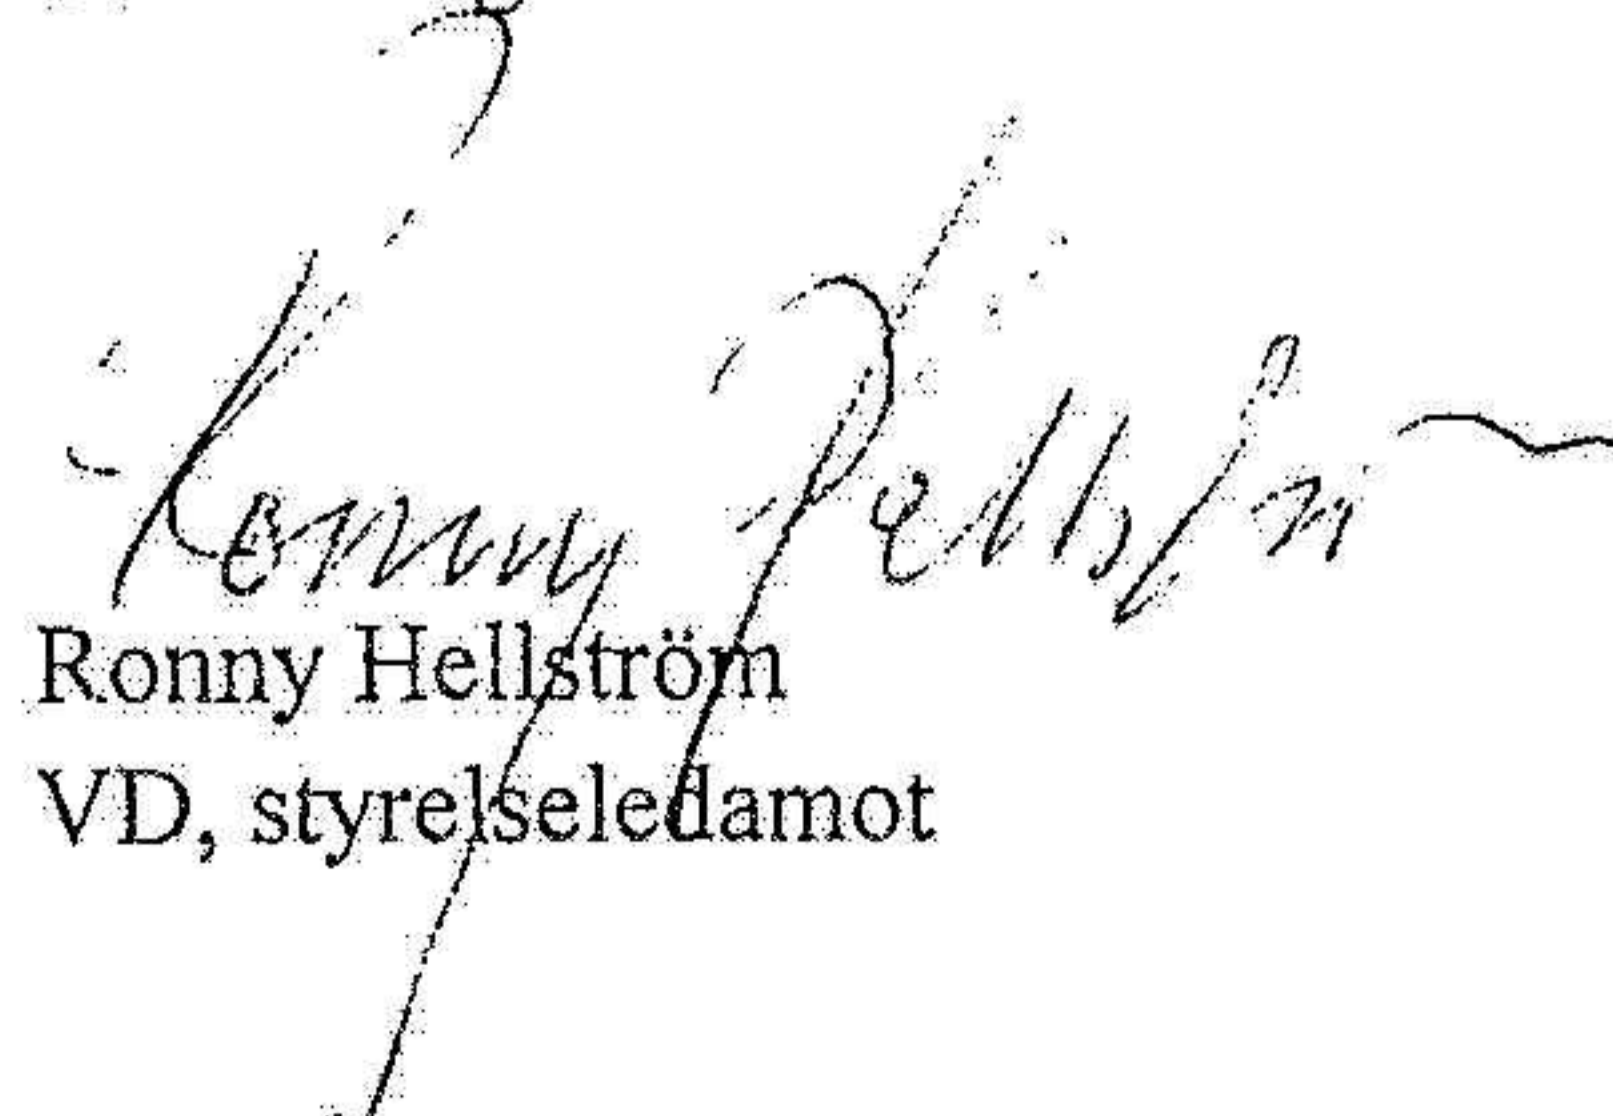 Ronny Hellström
Ronny Hellström
VD, styrelseledamot